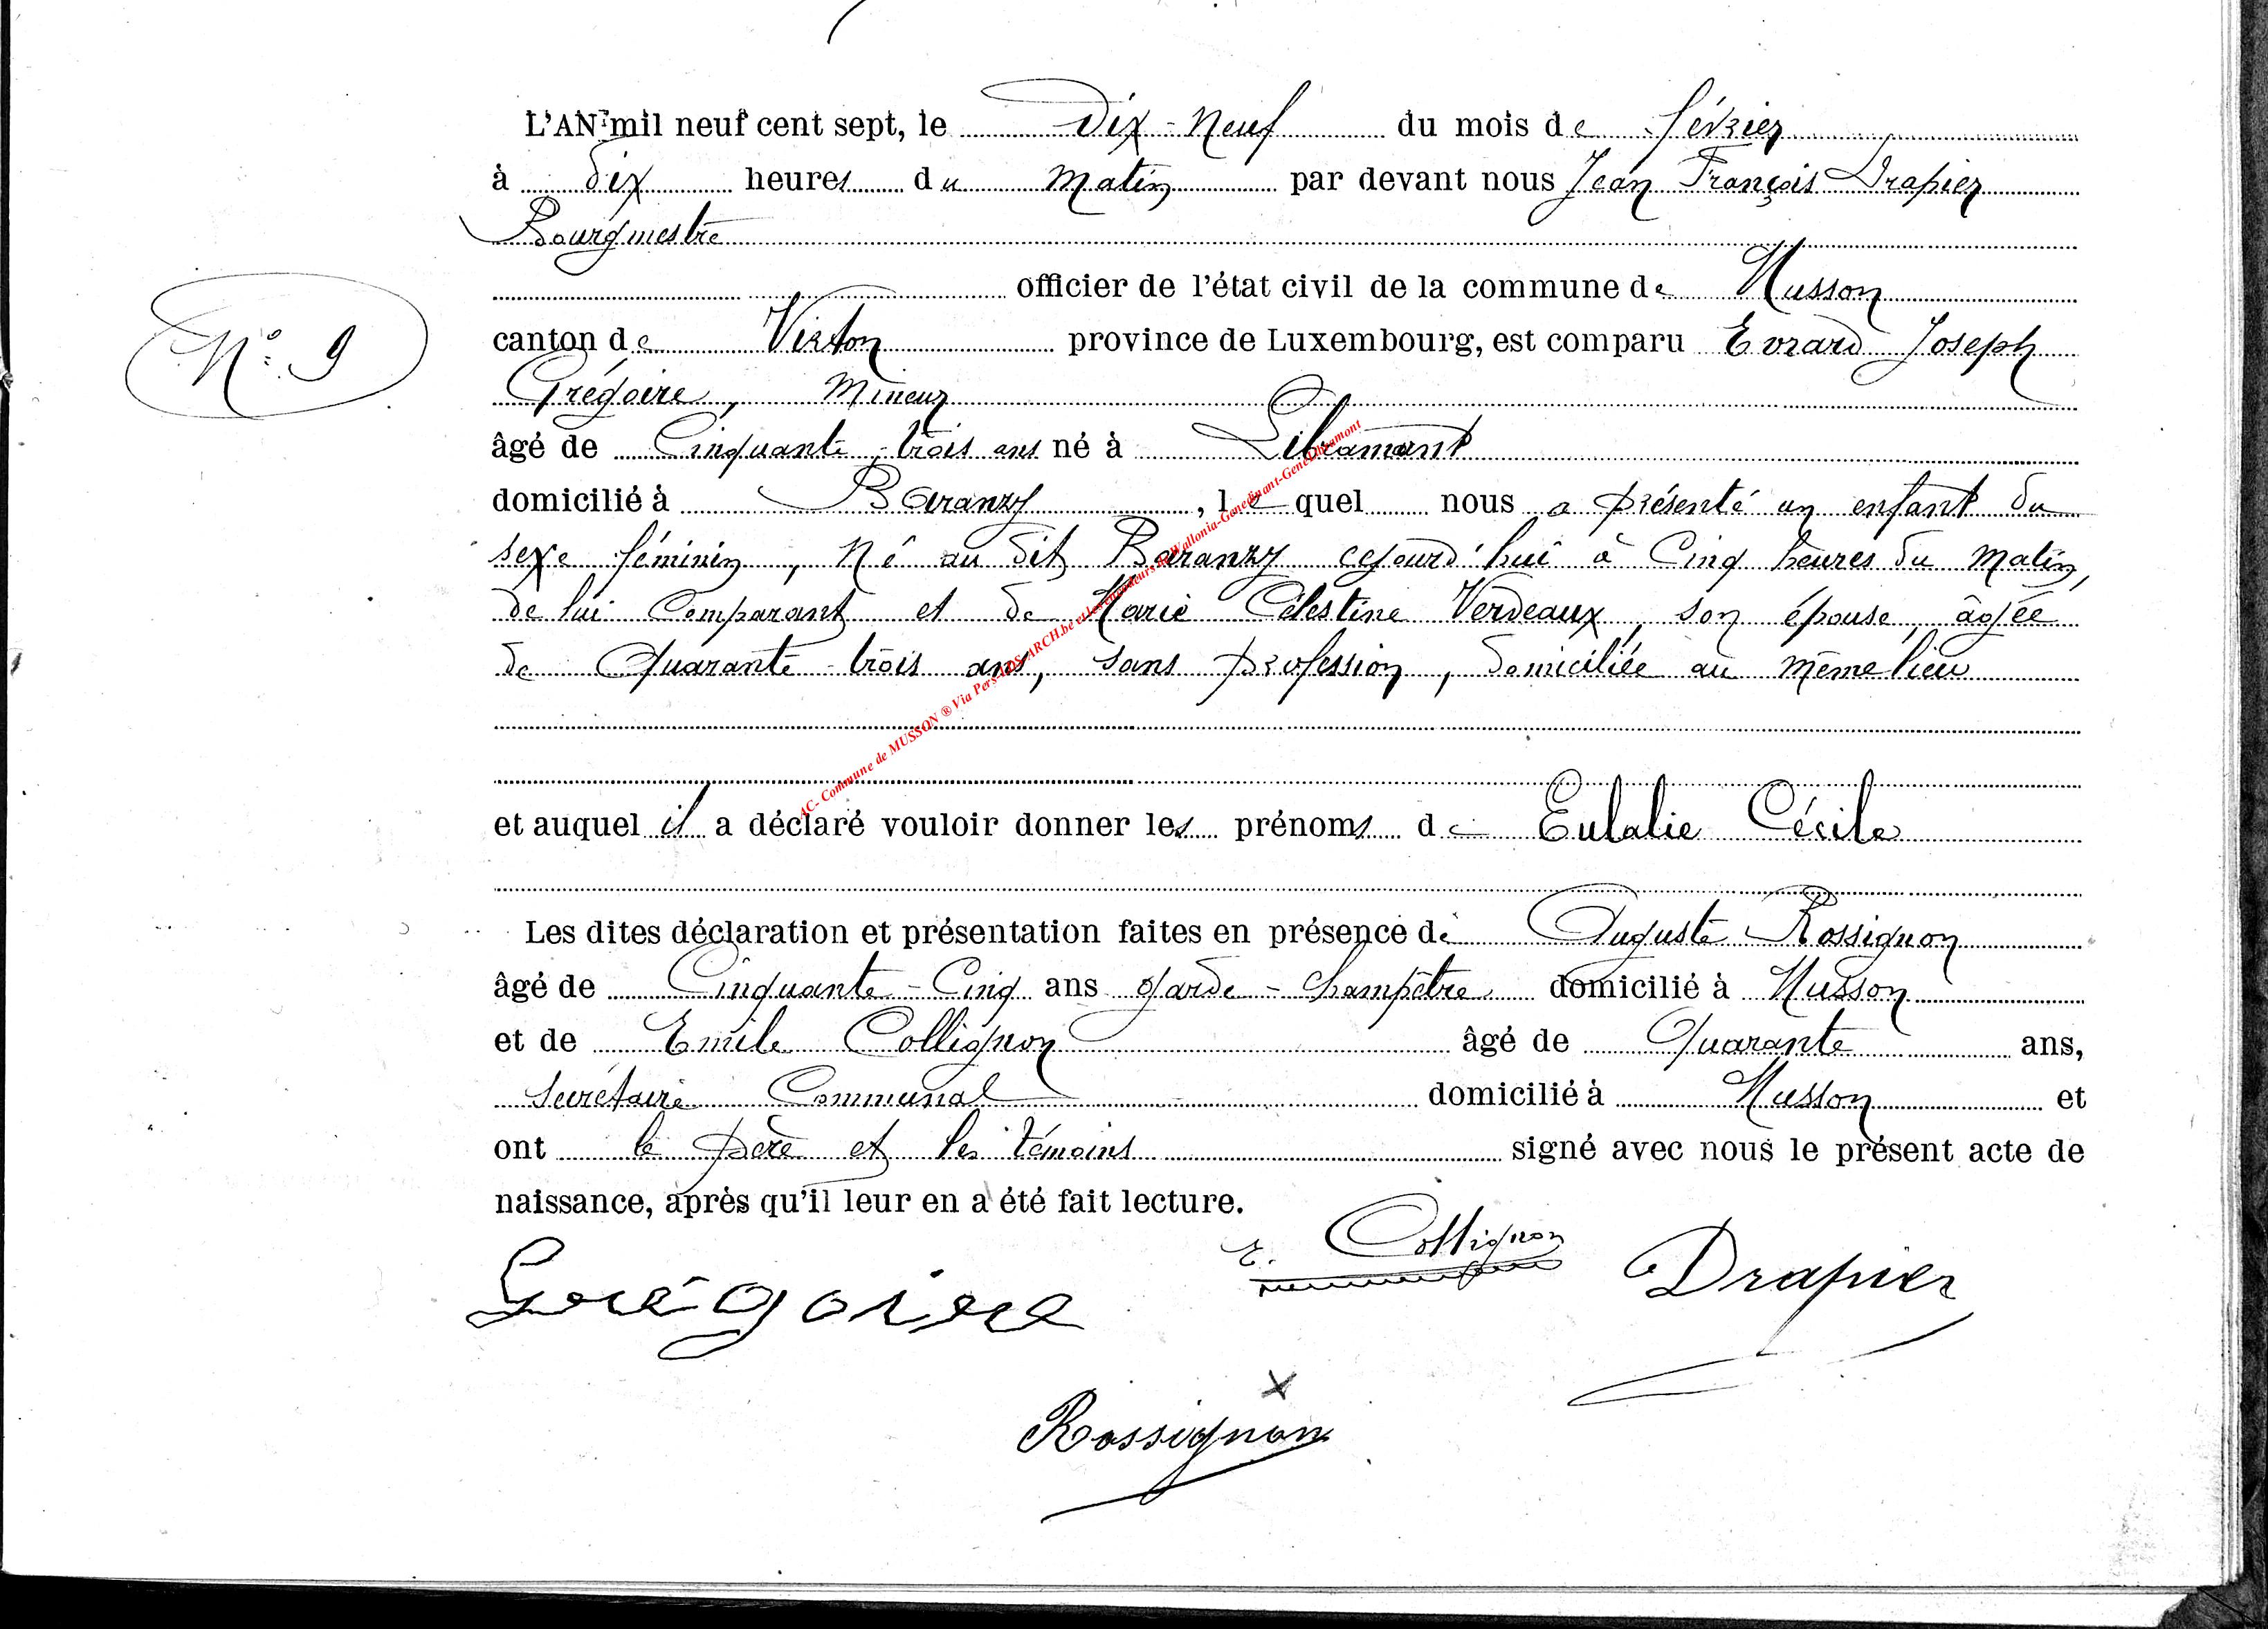 L'AN mil neuf cent sept, le Dix-Neuf du mois de février
à dix heures du Matin par devant nous Jean François Drapier
Bourgmestre
officier de l'état civil de la commune de Musson
canton de Virton province de Luxembourg, est comparu Evrard Joseph
N° 9
Grégoire, Mineur
âgé de Cinquante-trois ans né à Libramont
domicilié à Baranzy, lequel nous a présenté un enfant du
sexe féminin, né au dit Baranzy cejourd'hui à Cinq heures du Matin,
de lui Comparant et de Marie Célestine Verdeaux, son épouse, âgée
de Quarante-trois ans, sans profession, domiciliée au même lieu
AC- Commune de MUSSON ® Via Pers-LDS-ARCH.be et les encodeurs de Wallonia-Genedinant-GeneLibramont
et auquel il a déclaré vouloir donner les prénoms de Eulalie Cécile
Les dites déclaration et présentation faites en présence de Auguste Rossignon
âgé de Cinquante-Cinq ans garde-Champêtre domicilié à Musson
et de Emile Collignon âgé de Quarante ans,
Secrétaire Communal domicilié à Musson et
ont le père et les témoins signé avec nous le présent acte de
naissance, après qu'il leur en a été fait lecture.
E. Collignon
Grégoire Drapier
Rossignon